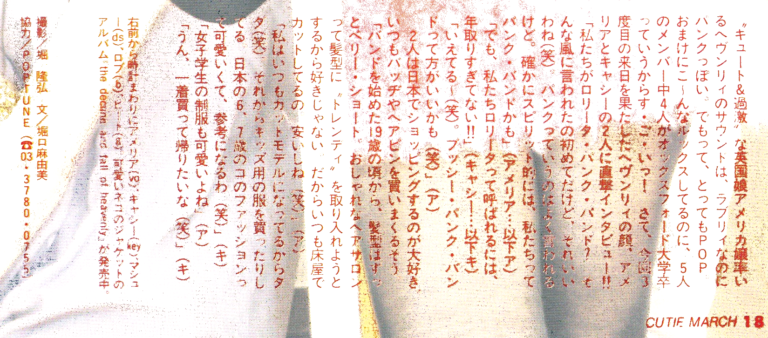 “キュート＆過激”な英国娘アメリカ嬢率い
るヘヴンリィのサウンドは、ラブリィなのに
パンクっぽい。でもって、とってもPOP
おまけにこ〜んなルックスしてるのに、5人
のメンバー中4人がオックスフォード大学卒
っていうからすごいっ！ さて、今回3
度目の来日を果たしたヘヴンリィの顔、アメ
リアとキャシーの2人に直撃インタビュー!!
「私たちがロリータ・パンク・バンド？ そ
んな風に言われたの初めてだけど、それいい
わね（笑）。パンクっていうのはよく言われる
けど。確かにスピリット的には、私たちって
パンク・バンドかも」（アメリア…以下ア）
「でも、私たちロリータって呼ばれるには、
年取りすぎてない!!」（キャシー…以下キ）
「いえてる〜（笑）。プッシー・パンク・バン
ドって方がいいかも（笑）」（ア）
2人は日本でショッピングするのが大好き
いつもバッヂやヘアピンを買いまくるそう
「バンドを始めた19歳の頃から、髪型はずっ
とベリー・ショート。おしゃれなヘアサロン
って髪型に“トレンディ”を取り入れようと
するから好きじゃない だからいつも床屋で
カットしてるの 安いしね（笑）」（ア）
「私はいつもカットモデルになってるからタ
ダ（笑） それからキッズ用の服を買ったりし
てる 日本の6、7歳のコのファッションっ
て可愛いくて、参考になるわ（笑）」（キ）
「女子学生の制服も可愛いよね」（ア）
「うん、一着買って帰りたいな（笑）」（キ）
右前から時計まわりにアメリア(vo)、キャシー(key)、マシュ
ー(ds)、ロブ(b)、ピート(g) 可愛いネコのジャケットの
アルバム「the decline and fall of heavenly」が発売中
撮影／堀 隆弘 文／堀口麻由美
協力／POPTUNE（☎03・3780・0755）
CUTIE MARCH 18